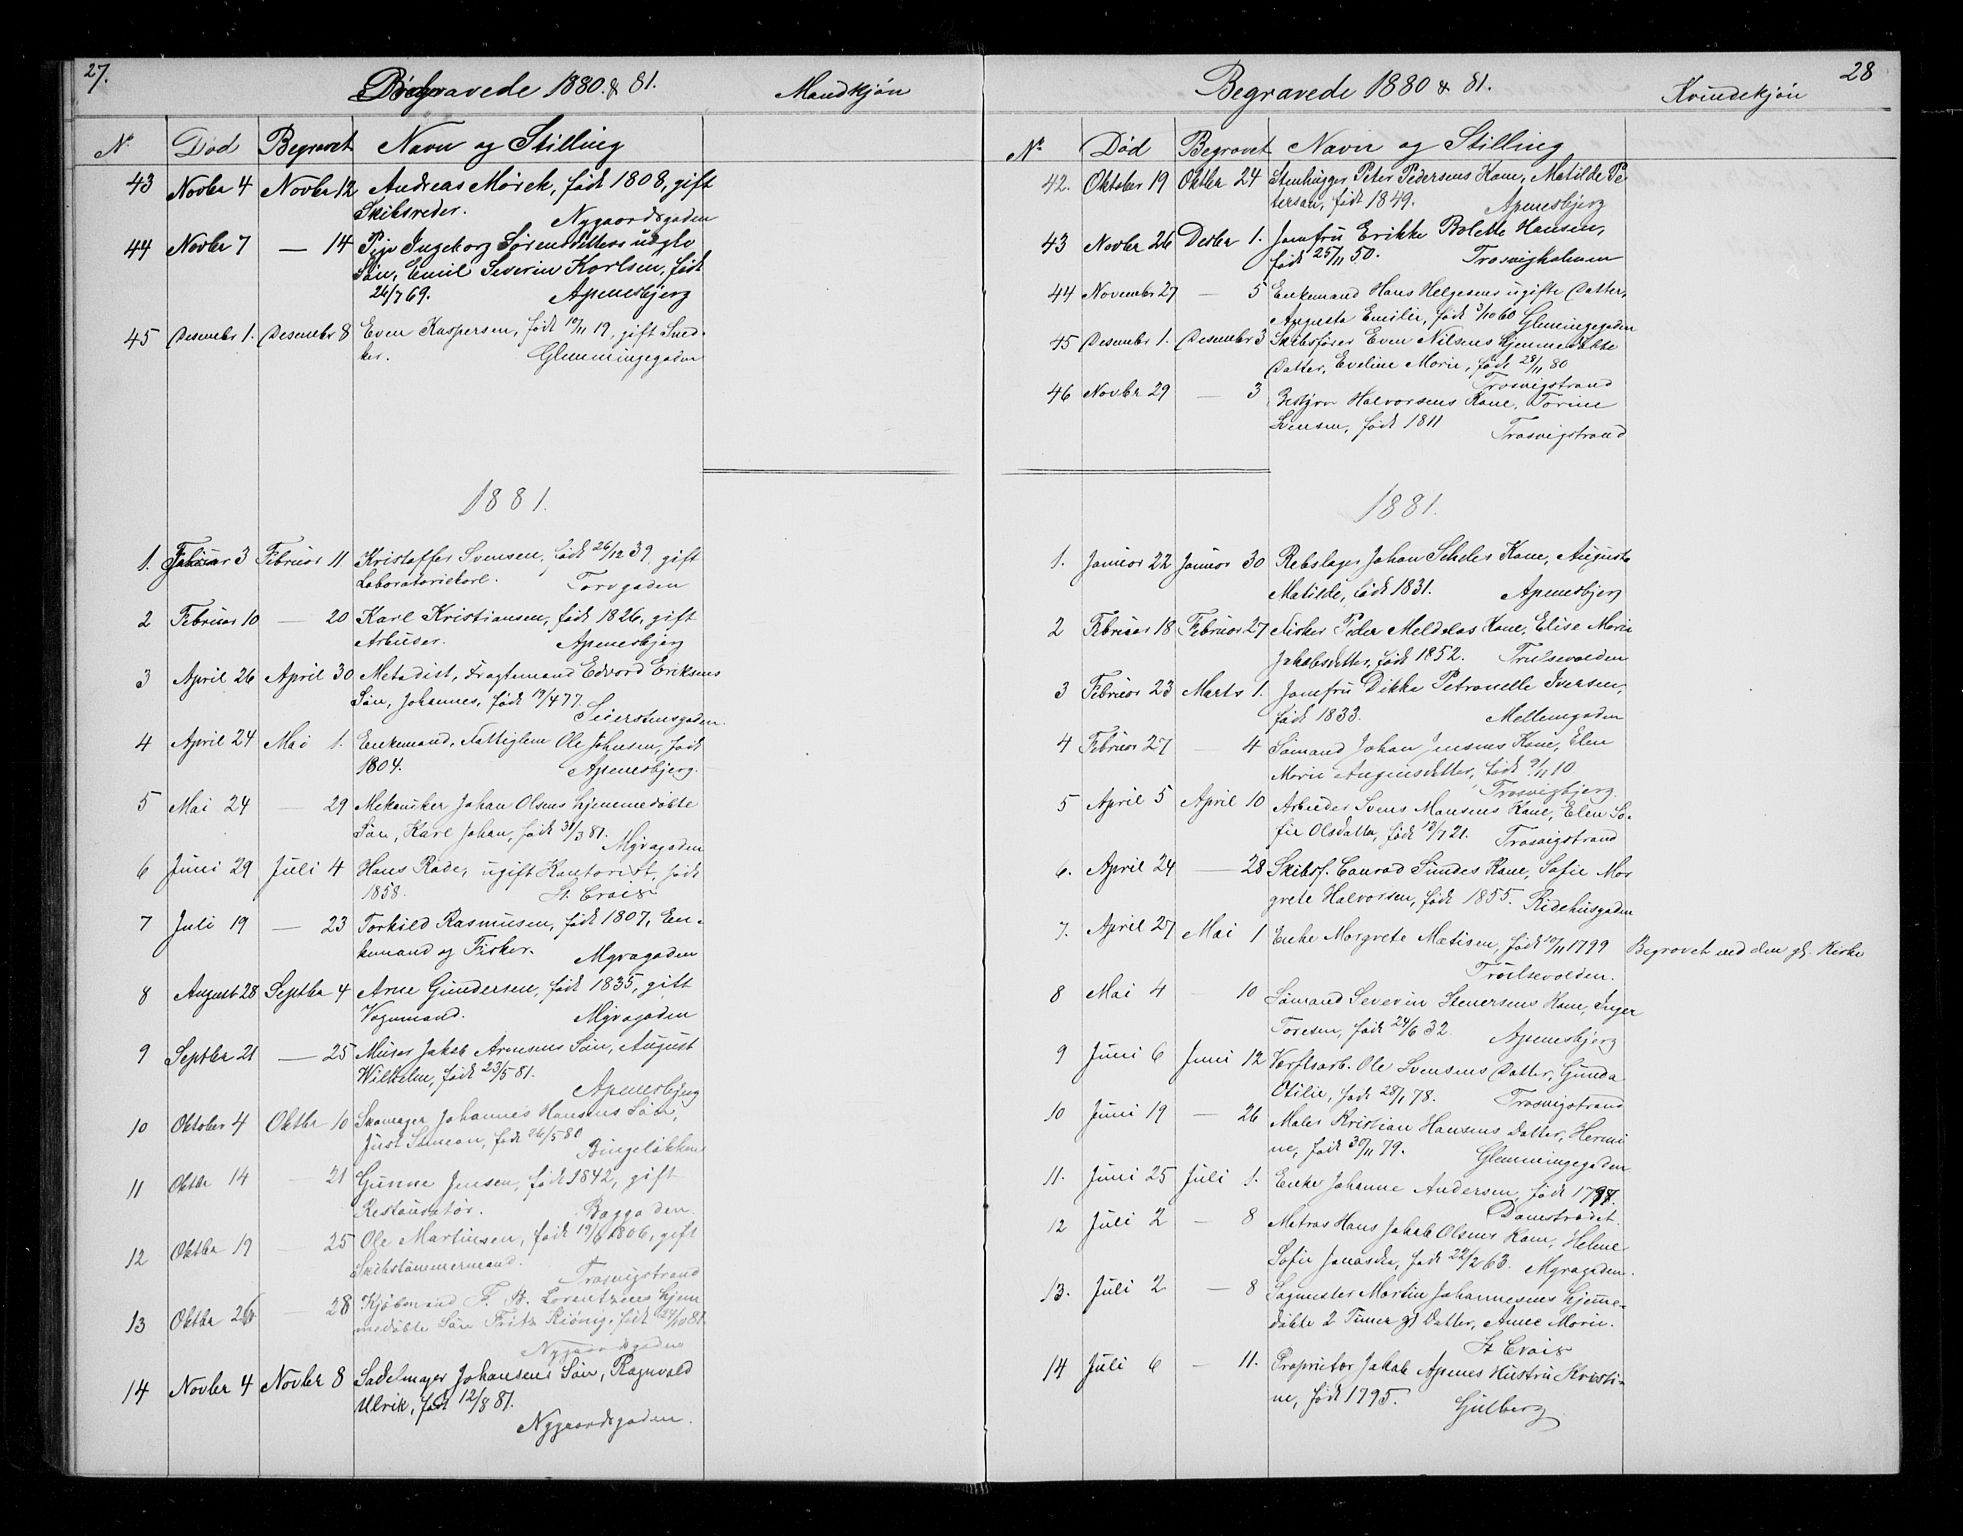 27.
Begravede 1880. & 81.
Mandkjøn
No Død Begravet Navn og Stilling
43 Novbr 4 Novbr 12 Andreas Mörck, født 1808, gift
Skibsreder. Nygaardsgaden
44 Novbr 7 — 14 Pige Ingeborg Sörensdatters udøbte
Søn, Emil Severin Karlsen, født
26/7 69. Apenesbjerg
45 Desembr 1. Desembr 8 Even Kaspersen, født 10/11 19, gift Sned-
ker. Glemmingegaden
1881.
1. Februar 3 Februar 11 Kristoffer Svensen, født 26/12 39, gift
Laboratoriekarl. Torvgaden
2 Februar 10 — 20 Karl Kristiansen, født 1826, gift
Arbeider. Apenesbjerg
3 April 26 April 30 Metodist, Fragtemand Edvard Eriksens
Søn, Johannes, født 19/4 77.
Seierstensgaden.
4 April 24 Mai 1. Enkemand, Fattiglem Ole Johnsen, født
1804. Apenesbjerg.
5 Mai 24 — 29 Mekaniker Johan Olsens hjemmedøbte
Søn, Karl Johan, født 31/3 81. Myragaden
6 Juni 29 Juli 4 Hans Rode, ugift Kontorist, født
1858. St. Croix
7 Juli 19 — 23 Torkild Rasmusen, født 1807, En-
kemand og Fisker. Myragaden
8 August 28 Septbr 4 Arne Gundersen, født 1835, gift
Vognmand. Myragaden
9 Septbr 21 — 25 Murer Jakob Arnesens Søn, August
Wilhelm, født 23/5 81.
Apenesbjerg
10 Oktober 4 Oktbr 10 Skomager Johannes Hansens Søn,
Just Simeon, født 26/5 80
Bingeløkken
11 Oktbr 14 — 21 Gunne Jensen, født 1842, gift
Restauratør. Baggaden.
12 Oktbr 19 — 25 Ole Martinsen, født 19/6 1806, gift
Skibstømmermand.
Trosvigstrand
13 Oktbr 26 — 28 Kjøbmand F. St. Lorentzens hjem
medøbte Søn Fritz Kiönig, født 24/10 81.
Nygaardsgaden
14 Novbr 4 Novbr 8 Sadelmager Johansens Søn, Ragnvald
Ulrik, født 12/8 81.
Nygaardsgaden.
28
Begravede 1880 & 81.
Kvindekjøn
No Død Begravet Navn og Stilling
42. Oktober 19 Oktbr 24 Stenhugger Peter Pedersens Kone, Matilde Pe
tersen, født 1849. Apenesbjerg
43 Novbr 26 Desbr 1. Jomfru Erikke Bolette Hansen,
født 25/11 50. Trosvigholmen
44 November 27 — 5 Enkemand Hans Helgesens ugifte Datter,
Augusta Emilie, født 3/10 60 Glemmingegaden
45 Desembr 1. Desember 3 Skibsfører Even Nilsens hjemmedøbte
Datter, Eveline Marie, født 28/11 80
Trosvigstrand
46 Novbr 29 — 3 Halvorsens Kone, Torine
Svensen, født 1811 Trosvigstrand
1881.
1. Januar 22 Januar 30 Rebslager Johan Kone, Augusta
Matilde, født 1831. Apenesbjerg
2 Februar 18 Februar 27 Fisker Peder Kone, Elise Marie
Jakobsdatter, født 1852. Trulsevolden
3 Februar 23 Marts 1. Jomfru Dikka Petronelle Iversen,
født 1833. Mellemgaden
4 Februar 27 — 4 Sømand Johan Jensens Kone, Elen
Marie Augensdatter, født 9/11 10
Trosvigbjerg.
5 April 5 April 10 Arbeider Svens Monsens Kone, Elen So-
fie Olsdatter, født 13/7 21. Trosvigstrand
6. April 24 — 28 Skibsf. Conrad Sundes Kone, Sofie Mar
grete Halvorsen, født 1855. Ridehusgaden
7. April 27 Mai 1 Enke Margrete Matisen, født 10/11 1799 Begravet ved den gl. Kirke
Trulsevolden.
8 Mai 4 — 10 Sømand Severin Stenersens Kone, Inger
Toresen, født 24/6 32. Apenesbjerg
9 Juni 6 Juni 12 Verftsarb. Ole Svensens Datter, Gunda
Otilie, født 28/1 78. Trosvigstrand
10 Juni 19 — 26 Maler Kristian Hansens Datter, Hermi
ne, født 30/11 79. Glemmingegaden
11. Juni 25 Juli 1. Enke Johanne Andersen, født 1797.
Damstrædet.
12 Juli 2 — 8 Matros Hans Jakob Olsens Kone, Helene
Sofie født 22/2 63. Myragaden.
13. Juli 2 — 8 Sagmester Martin Johannesens hjemme-
døbte 2 Timer gl Datter, Anne Marie.
St Croix
14 Juli 6 — 11. Proprietær Jakob Apenes Hustru Kristi-
ne, født 1795. Gulberg